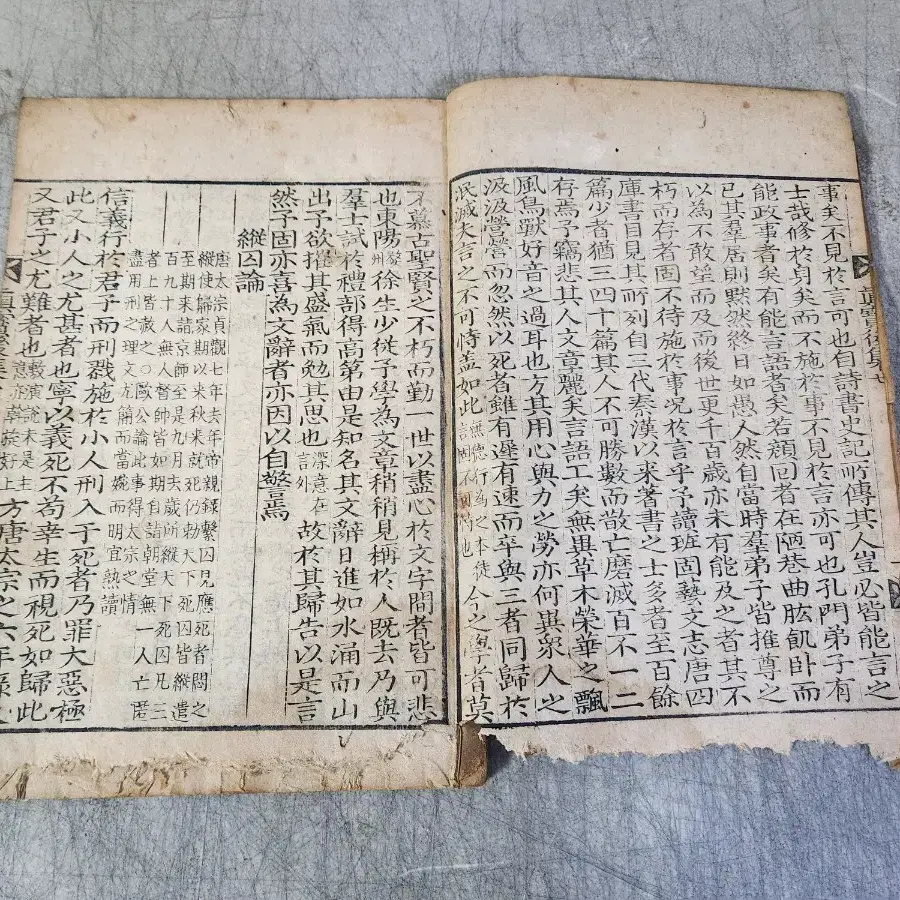 事矣不見於言可也自詩書史記所傳其人豈必皆能言之
士哉修於身矣而不施於事不見於言亦可也孔門弟子有
能政事者矣有能言語者矣若顔回者在陋巷曲肱飢卧而
已其羣居則黙然終日如愚人然自當時羣弟子皆推尊之
以為不敢望而及而後世更千百歲亦未有能及之者其不
朽而存者固不待施於事况於言乎予讀班固藝文志唐四
庫書目見其所列自三代秦漢以來著書之士多者至百餘
篇少者猶三四十篇其人不可勝數而散亡磨滅百不一二
存焉予竊悲其人文章麗矣言語工矣無異草木榮華之飄
風鳥獸好音之過耳也方其用心與力之勞亦何異衆人之
汲汲營營而忽然以死者雖有遲有速而卒與三者同歸於
泯滅夫言之不可恃盖如此無德行為之本徒言固不可恃也今之學者莫
眞寶後集七
不慕古聖賢之不朽而勤一世以盡心於文字間者皆可悲
也東陽婺州徐生少從予學為文章稍稍見稱於人既去乃與
羣士試於禮部得高第由是知名其文辭日進如水涌而山
出予欲摧其盛氣而勉其思也深意在言外故於其歸告以是言
然予固亦喜為文辭者亦因以自警焉
縱囚論
唐太宗貞觀七年去年帝親錄繫囚見應死者閔之
縱使歸家期以來秋來就死仍勑天下死囚皆縱遣
至期來詣京師至是九月去歲所縱天下死囚凡三
百九十人無人督帥皆如期自詣朝堂無一人亡匿
者上皆赦之○歐公論此事得太宗之情
盡用刑之理文尤簡而當嫩而明宜熟讀
信義行於君子而刑戮施於小人刑入于死者乃罪大惡極
此又小人之尤甚者也寧以義死不苟幸生而視死如歸此
又君子之尤難者也方唐太宗之六年錄